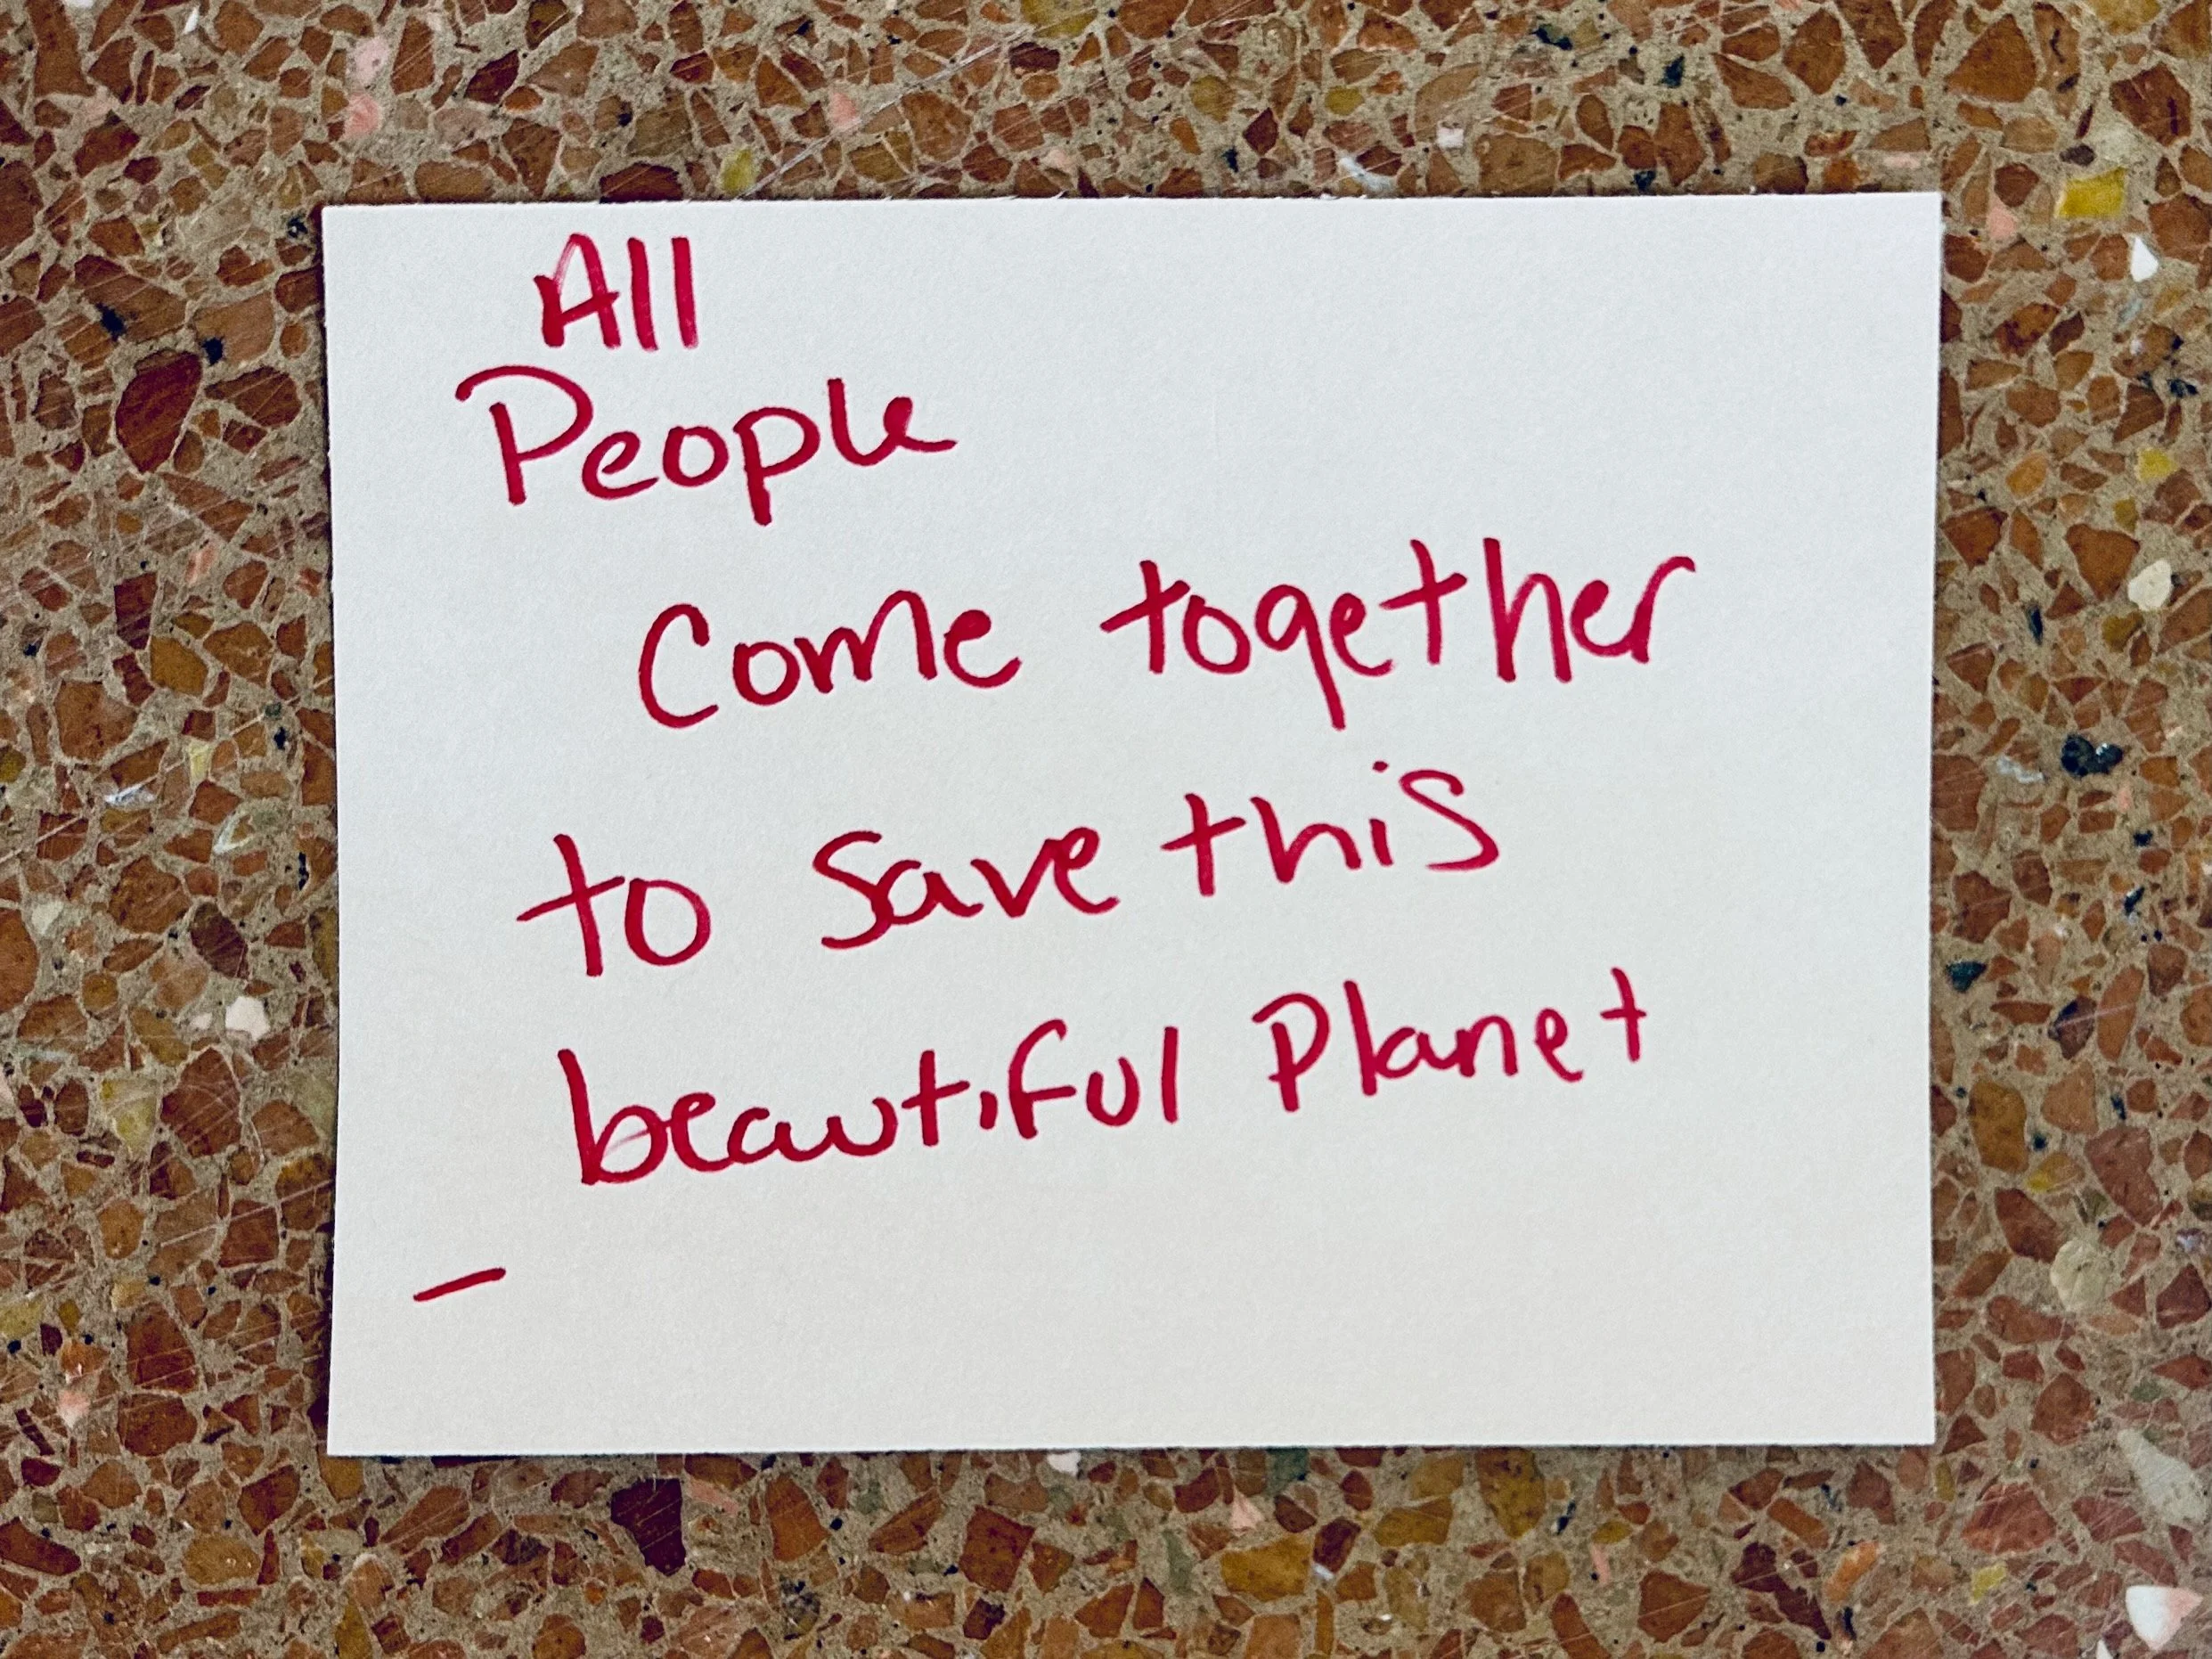 All
People
Come together
to save this
beautiful Planet
-